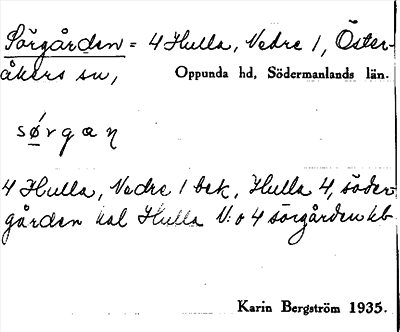 Sörgården = 4 Hulla, Vedre 1, Öster-
åkers sn, Oppunda hd, Södermanlands län.
sørgæɳ
4 Hulla, Vedre 1 bek, Hulla 4, söder
gården kal Hulla N:o 4 sörgården kb
Karin Bergström 1935.